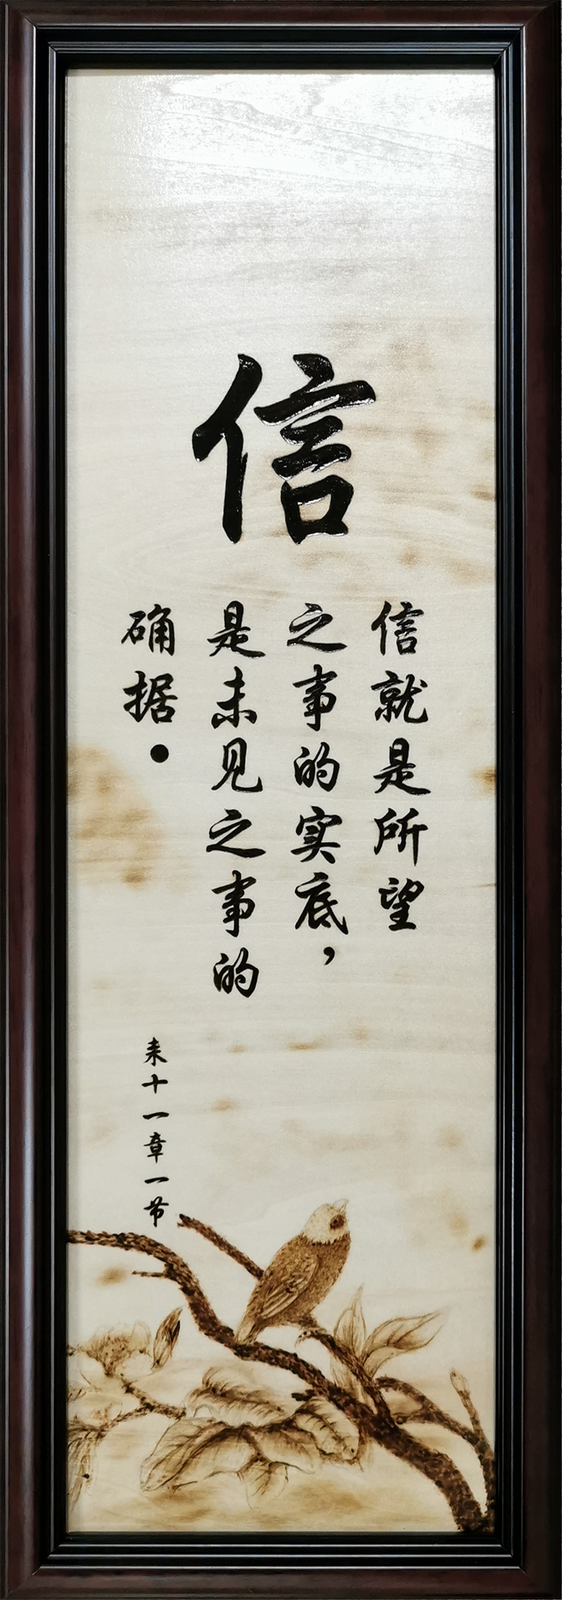 信
信就是所望
之事的实底，
是未见之事的
确据●
来十一章一节